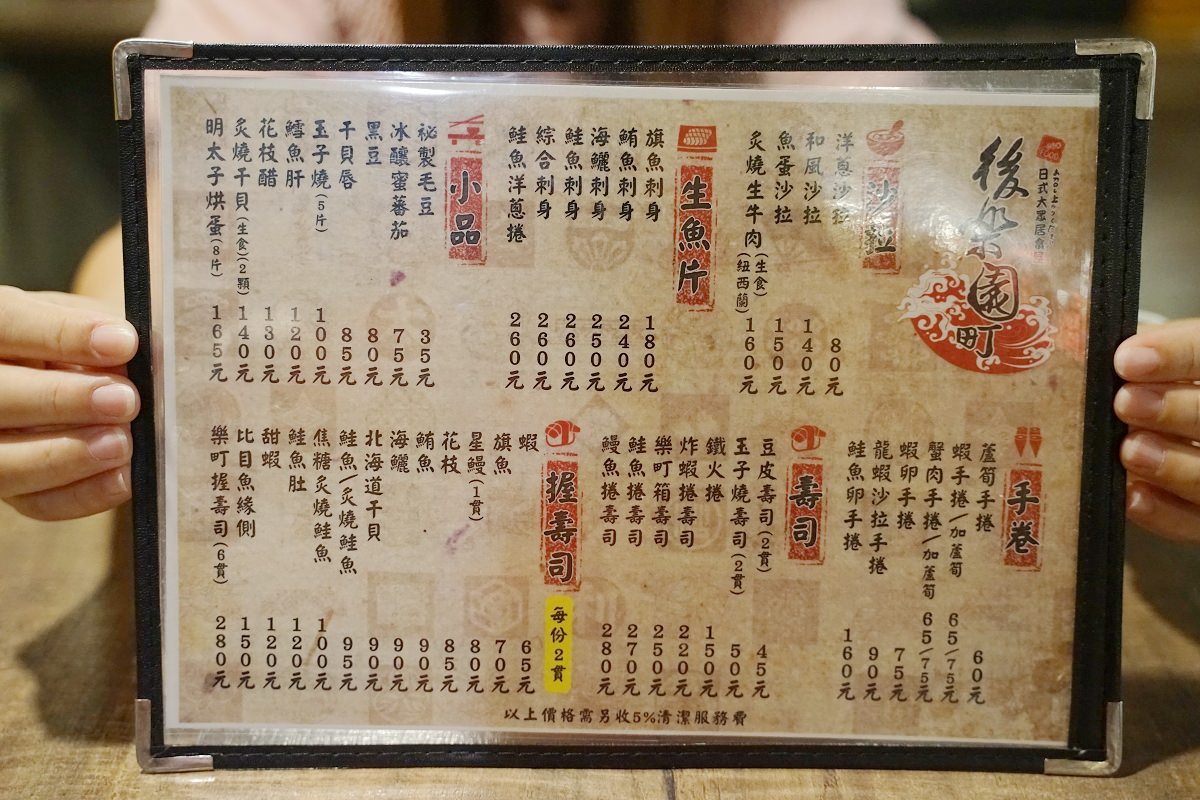 後樂園町
日式大眾居食屋
沙拉
洋蔥沙拉 80元
和風沙拉 140元
魚蛋沙拉 150元
炙燒生牛肉(生食)(紐西蘭) 160元
生魚片
旗魚刺身 180元
鮪魚刺身 240元
海鱺刺身 250元
鮭魚刺身 260元
綜合刺身 260元
鮭魚洋蔥捲 260元
小品
祕製毛豆 35元
冰釀蜜蕃茄 75元
黑豆 80元
干貝唇 85元
玉子燒(5片) 100元
鱈魚肝 120元
花枝醋 130元
炙燒干貝(生食)(2顆) 140元
明太子烘蛋(8片) 165元
手卷
蘆筍手捲 60元
蝦手捲/加蘆筍 65/75元
蟹肉手捲/加蘆筍 65/75元
蝦卵手捲 75元
龍蝦沙拉手捲 90元
鮭魚卵手捲 160元
壽司
豆皮壽司(2貫) 45元
玉子燒壽司(2貫) 50元
鐵火捲 150元
炸蝦捲壽司 220元
樂町箱壽司 250元
鮭魚捲壽司 270元
鰻魚捲壽司 280元
握壽司
每份2貫
蝦 65元
旗魚 70元
星鰻(1貫) 80元
花枝 85元
鮪魚 90元
海鱺 90元
北海道干貝 90元
鮭魚/炙燒鮭魚 95元
焦糖炙燒鮭魚 100元
鮭魚肚 120元
甜蝦 120元
比目魚緣側 150元
樂町握壽司(6貫) 280元
以上價格需另收5%清潔服務費